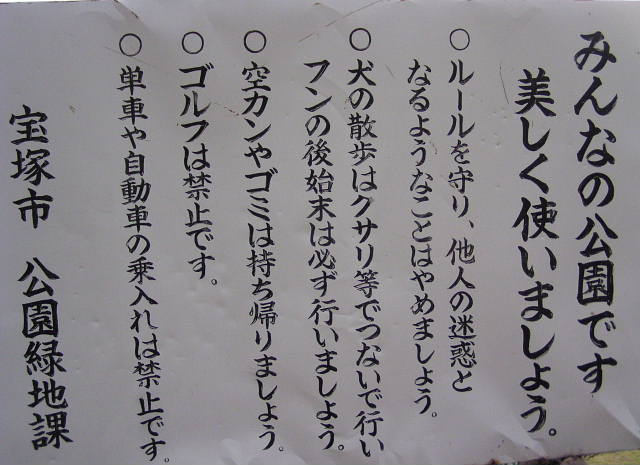 みんなの公園です
美しく使いましょう。
○ ルールを守り、他人の迷惑と
なるようなことはやめましょう。
○ 犬の散歩はクサリ等でつないで行い
フンの後始末は必ず行いましょう。
○ 空カンやゴミは持ち帰りましょう。
○ ゴルフは禁止です。
○ 単車や自動車の乗入れは禁止です。
宝塚市 公園緑地課